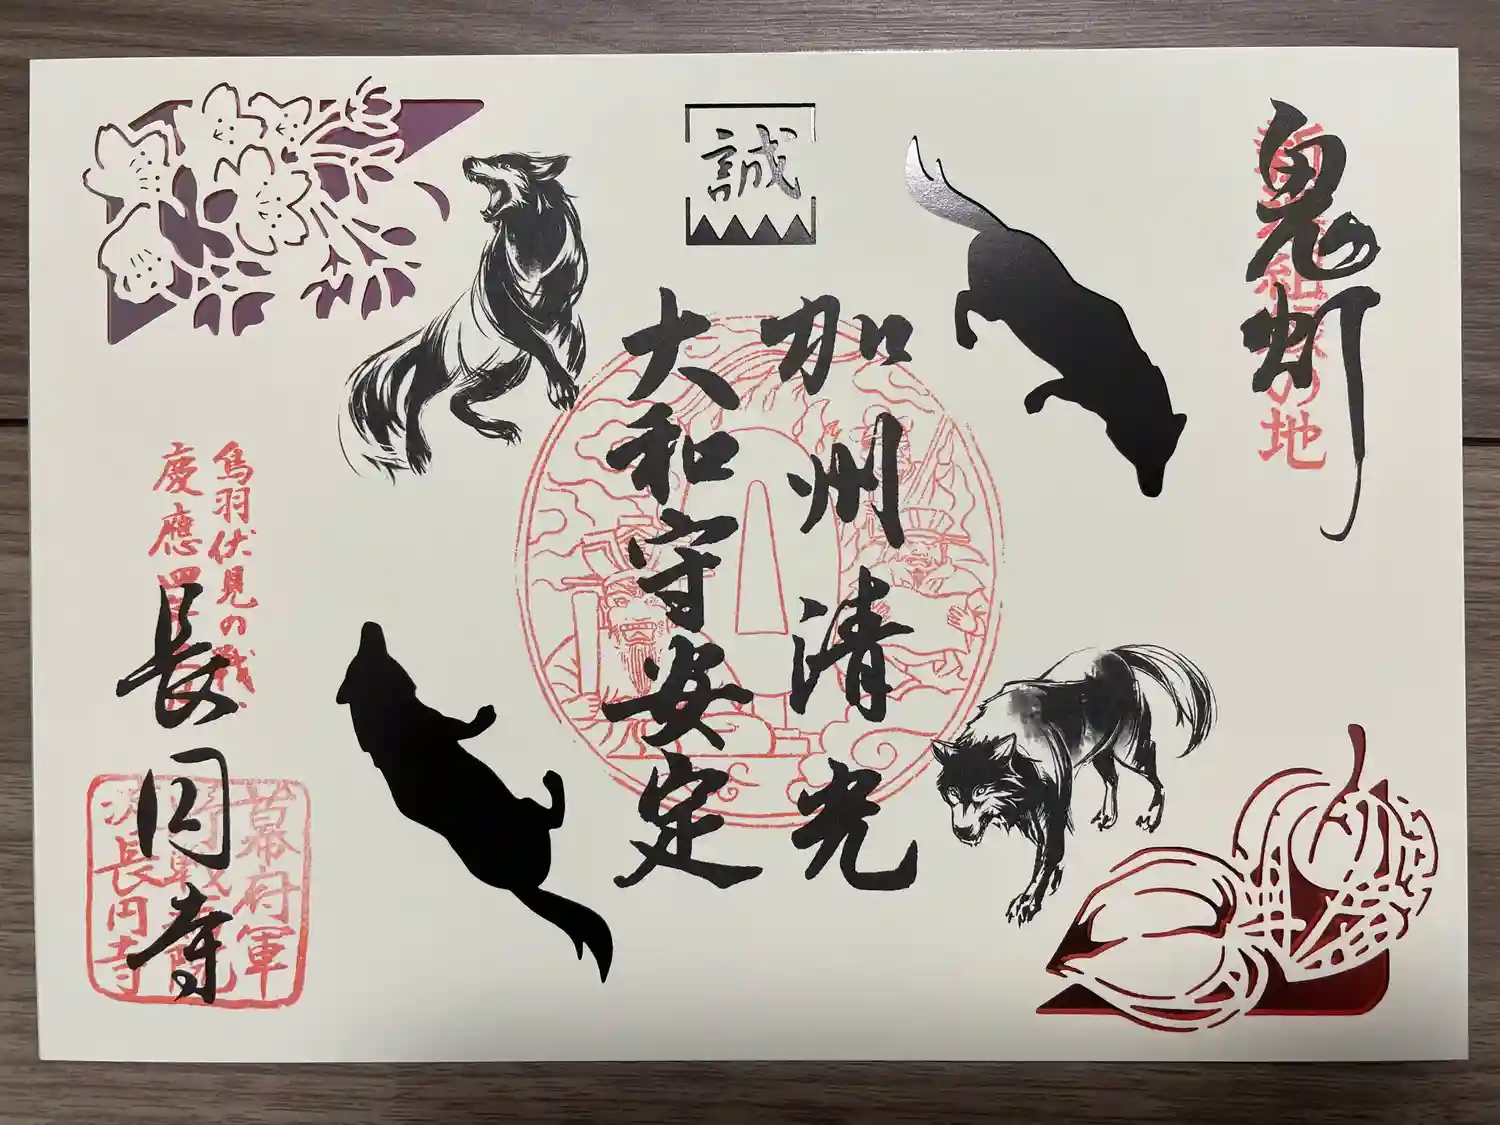 鬼灯
組 の地
誠
加州清光
大和守安定
鳥羽伏見の戦
慶應四
長円寺
幕府軍
野戦 院
淀長円寺